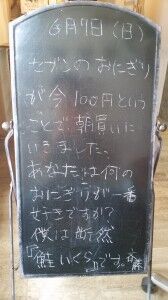 6月7日（日）
セブンのおにぎり
が今100円という
ことで、朝買いに
いきました。
あなたは何の
おにぎりが一番
好きですか？
僕は断然
『鮭いくら』です。